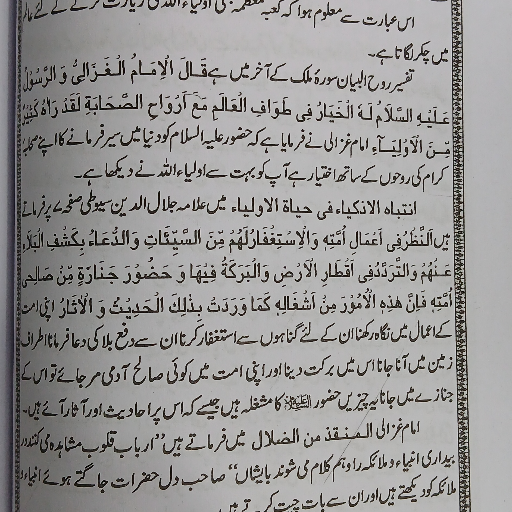 اس عبارت سے معلوم ہوا کہ کعبہ معظمہ بھی اولیاء اللہ کی زیارت کرنے کے لئے عالم
میں چکر لگاتا ہے۔
تفسیر روح البیان سورۂ ملک کے آخر میں ہے قَالَ الْاِمَامُ الْغَزَالِیُّ وَ الرَّسُوْلُ
عَلَیْہِ السَّلَامُ لَہٗ الْخِیَارُ فِی طَوَافِ الْعَالَمِ مَعَ اَرْوَاحِ الصَّحَابَۃِ لَقَدْ رَاٰہُ کَثِیْرٌ
مِّنَ الْاَوْلِیَآءِ امام غزالی نے فرمایا ہے کہ حضور علیہ السلام کو دنیا میں سیر فرمانے کا اپنے صحابہ
کرام کی روحوں کے ساتھ اختیار ہے آپ کو بہت سے اولیاء اللہ نے دیکھا ہے۔
انتباہ الاذکیاء فی حیاۃ الاولیاء میں علامہ جلال الدین سیوطی صفحہ ۷ پر فرماتے
ہیں اَلنَّظْرُ فِی اَعْمَالِ اُمَّتِہٖ وَالْاِسْتِغْفَارُ لَھُمْ مِّنَ السَّیِّئَاتِ وَالدُّعَاءُ بِکَشْفِ الْبَلَاءِ
عَنْھُمْ وَالتَّرَدُّدُ فِی اَقْطَارِ الْاَرْضِ وَالْبَرَکَۃُ فِیْھَا وَ حُضُوْرُ جَنَازَۃٍ مِّنْ صَالِحِی
اُمَّتِہٖ فَاِنَّ ھٰذِہِ الْاُمُوْرَ مِنْ اَشْغَالِہٖ کَمَا وَرَدَتْ بِذٰلِکَ الْحَدِیْثُ وَ الْاٰثَارُ اپنی امت
کے اعمال میں نگاہ رکھنا ان کے لئے گناہوں سے استغفار کرنا ان سے دفع بلا کی دعا فرمانا اطراف
زمین میں آنا جانا اس میں برکت دینا اور اپنی امت میں کوئی صالح آدمی مر جائے تو اس کے
جنازے میں جانا یہ چیزیں حضور ﷺ کا مشغلہ ہیں جیسے کہ اس پر احادیث اور آثار آئے ہیں۔
امام غزالی المنقذ من الضلال میں فرماتے ہیں ”ارباب قلوب مشاہدہ می کنند در
بیداری انبیاء و ملائکہ را و ہم کلام می شوند بایشاں“ صاحب دل حضرات جاگتے ہوئے انبیاء و
ملائکہ کو دیکھتے ہیں اور ان سے بات چیت کرتے ہیں